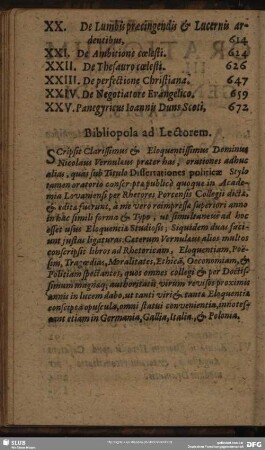 XX. De Lumbis præcingendis & Lucernis ar-
dentibus. 614
XXI. De Ambitione cœlesti. 624
XXII. De Thesauro cœlesti. 626
XXIII. De perfectione Christiana. 647
XXIV. De Negotiatore Evangelico. 659
XXV. Panegyricus Ioannis Duns Scoti, 672
Bibliopola ad Lectorem.
Scripsit Clarissimus & Eloquentissimus Dominus
Nicolaus Vernulæus præter has, orationes adhuc
alias, quas sub Titulo Dissertationes politicæ Stylo
tamen oratorio conscriptæ publicè quoque in Acade-
mia Lovaniensi per Rhetores Porcensis Collegii dictæ
& editæ fuerunt, à me verò reimpressæ superiori anno
in hâc simili forma & Typo, ut simul
esses usui Eloquentiæ Studiosis; Siquidem duas faci-
unt justas ligaturas. Cæterum Vernulæus alios multos
conscripsit libros ad Rhetoricam, Eloquentiam, Poë-
sim, Tragœdias, Moralitates, Ethicã, Oeconomiam, &
Politiam spectantes, quos omnes collegi & per Doctis-
simum magnæq; authoritatis virum revisos proximis
annis in lucem dabo, ut tanti viri & tanta Eloquentia
conscripta opuscula, omni statui convenientia, innotes-
cant etiam in Germania, Gallia, Italia, & Polonia.
SLUB